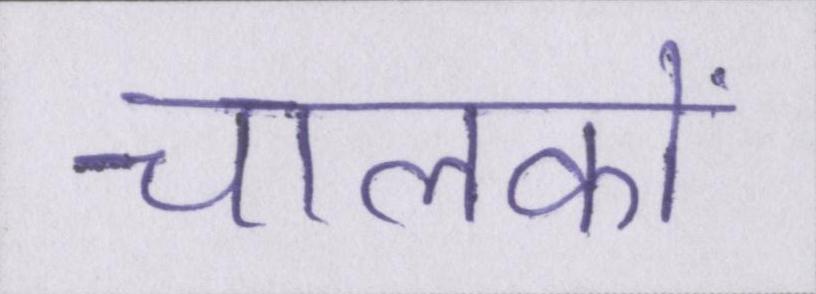 चालकों